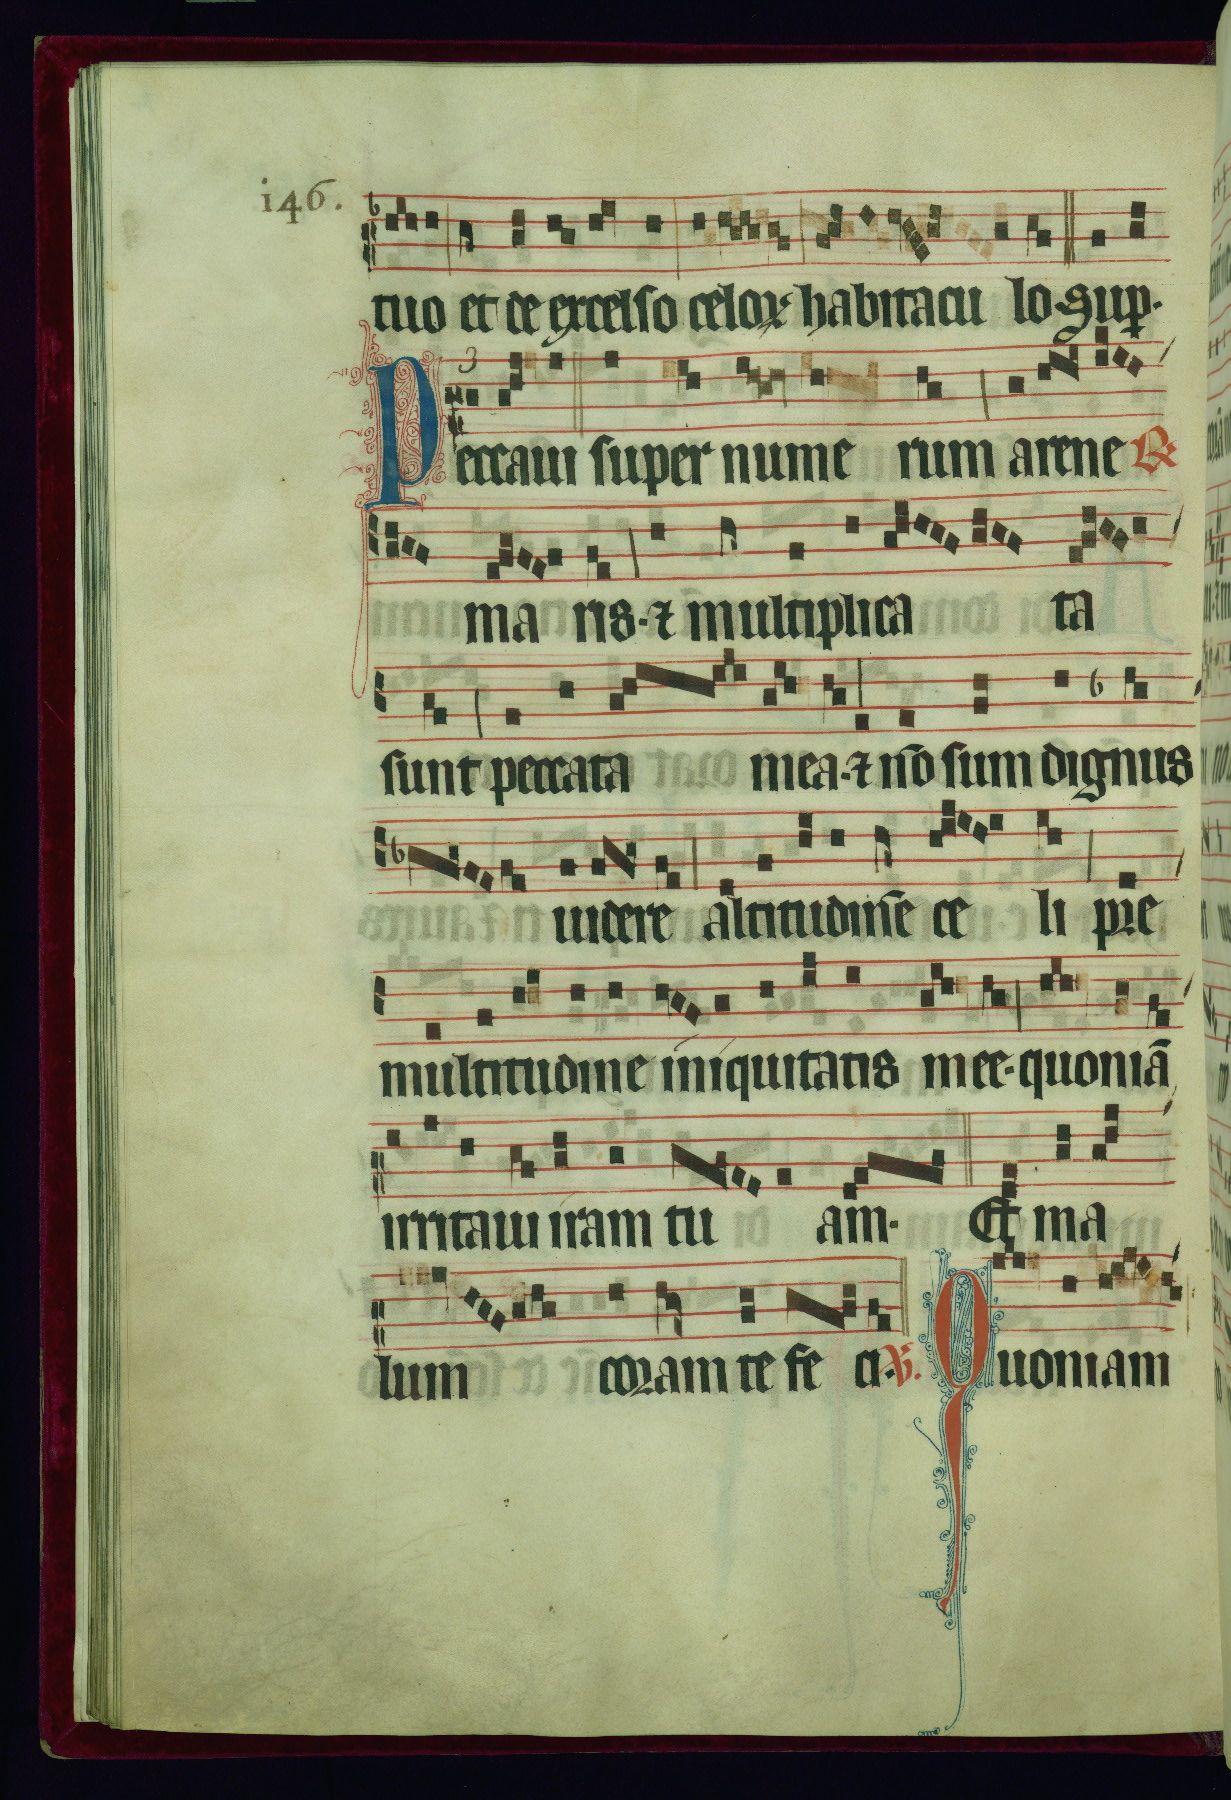 146.
tuo et de excelso celoꝝ habitacu lo. Sup.
3
Peccaui super nume rum arene ℟
ma ris. ⁊ multiplica ta
sunt peccata mea. ⁊ nō sum dignus
uidere altitudinē ce li pre
multitudine iniquitatis mee. quoniā
irritaui iram tu am. Et ma
lum coram te fe ci. ℣. Quoniam